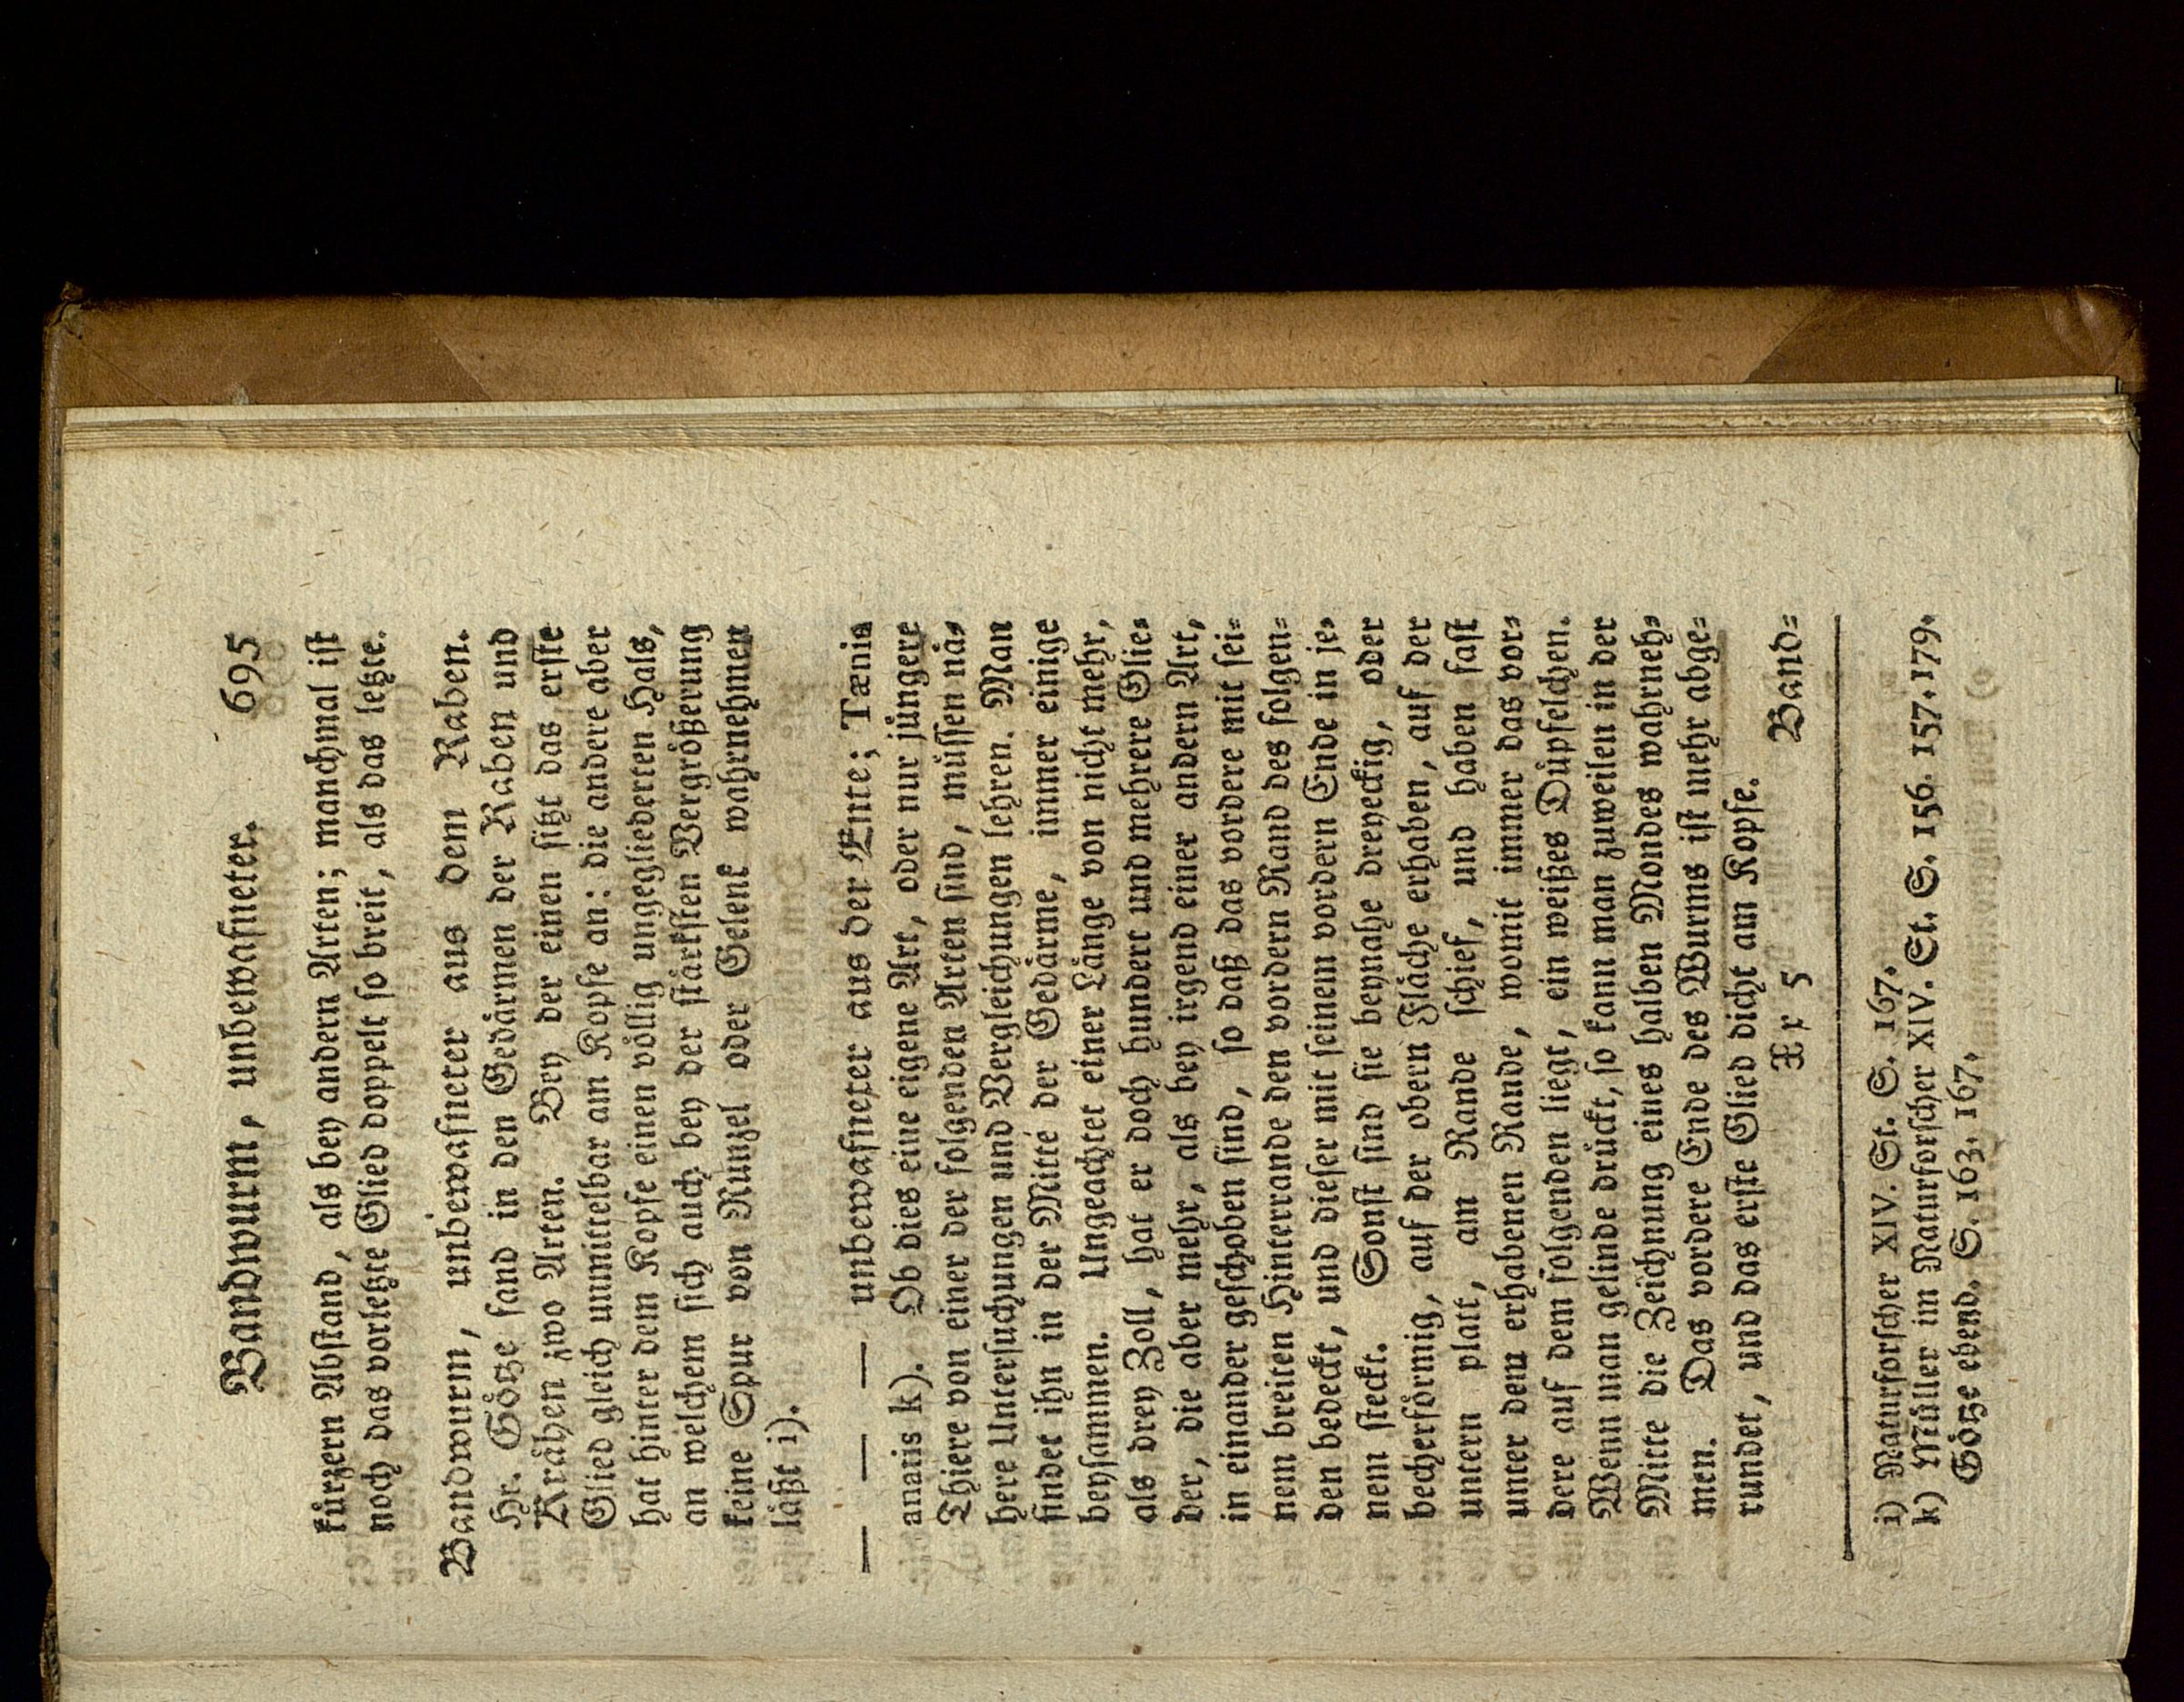 Bandwurm, unbewafneter. 695
kürzern Abstand, als bey andern Arten; manchmal ist
noch das vorletzte Glied doppelt so breit, als das letzte.
Bandwurm, unbewafneter aus dem Raben.
Hr. Götze fand in den Gedärmen der Raben und
Krähen zwo Arten. Bey der einen sitzt das erste
Glied gleich unmittelbar am Kopfe an: die andere aber
hat hinter dem Kopfe einen völlig ungegliederten Hals,
an welchem sich auch bey der stärksten Vergrößerung
keine Spur von Runzel oder Gelenk wahrnehmen
läßt i).
— — — unbewafneter aus der Ente; Tænia
anatis k). Ob dies eine eigene Art, oder nur jüngere
Thiere von einer der folgenden Arten sind, müssen nä-
here Untersuchungen und Vergleichungen lehren. Man
findet ihn in der Mitte der Gedärme, immer einige
beysammen. Ungeachtet einer Länge von nicht mehr,
als drey Zoll, hat er doch hundert und mehrere Glie-
der, die aber mehr, als bey irgend einer andern Art,
in einander geschoben sind, so daß das vordere mit sei-
nem breiten Hinterrande den vordern Rand des folgen-
den bedeckt, und dieser mit seinem vordern Ende in je-
nem steckt. Sonst sind sie beynahe dreyeckig, oder
becherförmig, auf der obern Fläche erhaben, auf der
untern platt, am Rande schief, und haben fast
unter dem erhabenen Rande, womit immer das vor-
dere auf dem folgenden liegt, ein weißes Düpfelchen.
Wenn man gelinde drückt, so kann man zuweilen in der
Mitte die Zeichnung eines halben Mondes wahrneh-
men. Das vordere Ende des Wurms ist mehr abge-
rundet, und das erste Glied dicht am Kopfe.
Xx 5 Band-
i) Naturforscher XIV. St. S. 167.
k) Müller im Naturforscher XIV. St. S. 156. 157. 179.
Götze ebend. S. 163. 167.